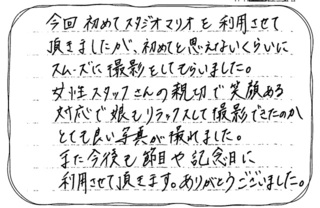 今回初めてスタジオマリオを利用させて
頂きましたが、初めてと思えないくらいに
スムーズに撮影をしてもらいました。
女性スタッフさんの親切で笑顔ある
対応で娘もリラックスして撮影できたのか
とても良い写真が撮れました。
また今後も節目や記念日に
利用させて頂きます。ありがとうございました。